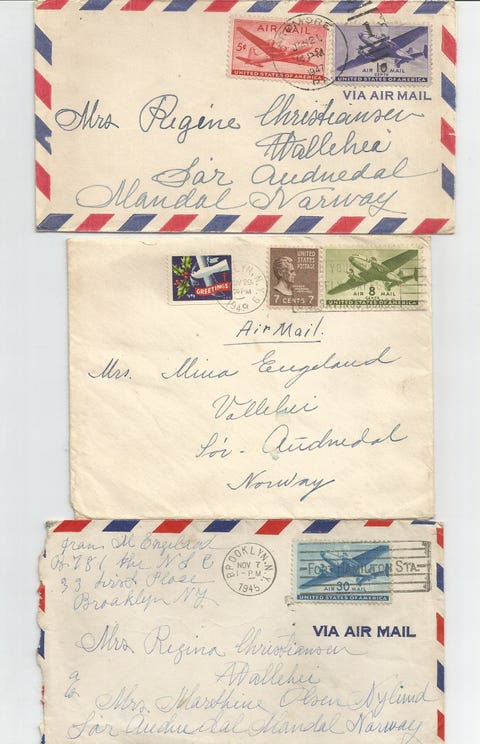 5¢ AIR MAIL
UNITED STATES OF AMERICA
10
CENTS
AIR MAIL
UNITED STATES OF AMERICA
1947
VIA AIR MAIL
Mrs Regine Christiansen
Vallehei
Sör Audnedal
Mandal Norway
GREETINGS
1949
UNITED STATES POSTAGE
7 CENTS 7
AIR 8 MAIL
CENTS
UNITED STATES OF AMERICA
Air Mail.
Mrs. Mina Engeland
Vallehei
Sör-Audnedal
Norway
From M Engeland
33 First Place
Brooklyn NY
BROOKLYN, N.Y.
NOV 7
1-PM
1945
FORT HAMILTON STA.
30
AIR MAIL
UNITED STATES OF AMERICA
VIA AIR MAIL
Mrs Regina Christiansen
Vallehei
c/o Mrs Marthine Olsen Nylund
Sör Audnedal Mandal Norway